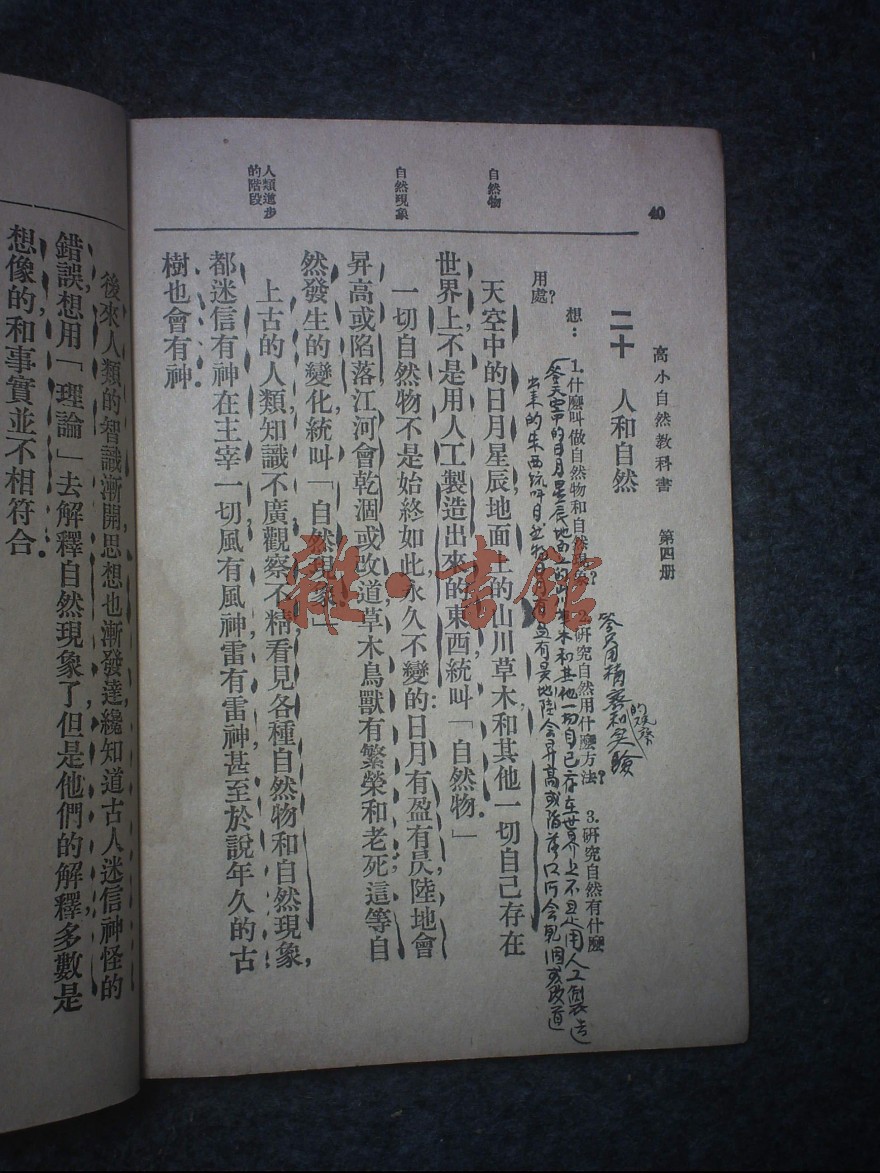 40
高小自然教科書　第四册
二十　人和自然
想：1.什麼叫做自然物和自然現象？　2.研究自然用什麼方法？　3.研究自然有什麼
用處？
自然物
天空中的日月星辰，地面上的山川草木，和其他一切自己存在
世界上，不是用人工製造出來的東西，統叫「自然物。」
自然現象
一切自然物，不是始終如此永久不變的：日月有盈有昃；陸地會
昇高或陷落；江河會乾涸或改道；草木鳥獸有繁榮和老死；這等自
然發生的變化，統叫「自然現象。」
人類進步
的階段
上古的人類，知識不廣，觀察不精，看見各種自然物和自然現象，
都迷信有神在主宰一切：風有風神，雷有雷神，甚至於說年久的古
樹也會有神。
後來，人類的智識漸開，思想也漸發達，纔知道古人迷信神怪的
錯誤，想用「理論」去解釋自然現象了。但是他們的解釋，多數是
想像的，和事實並不相符合。
答天空中的日月星辰地面上的山川草木和其他一切自己存在世界上不是用人工製造
出來的東西統叫自然物日月有盈有昃陸地會昇高或陷落江河會乾涸或改道
答用精密的觀察和实驗
雜·書館